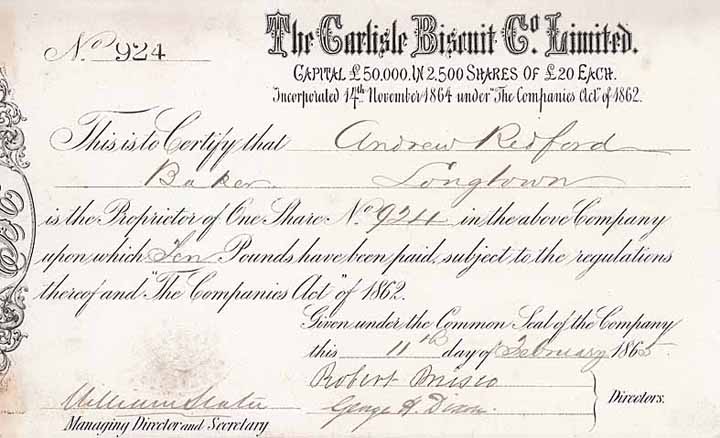 The Carlisle Biscuit Co. Limited.
No 924
CAPITAL £50,000, IN 2,500 SHARES OF £20 EACH.
Incorporated 14th November 1864 under "The Companies Act" of 1862.
This is to Certify that Andrew Redford
Baker Longtown
is the Proprietor of One Share No. 924 in the above Company
upon which Ten Pounds have been paid, subject to the regulations
thereof and "The Companies Act" of 1862.
Given under the Common Seal of the Company
this 11th day of February 1865
Robert Brisco
William Slater George H. Dixon
Directors.
Managing Director and Secretary